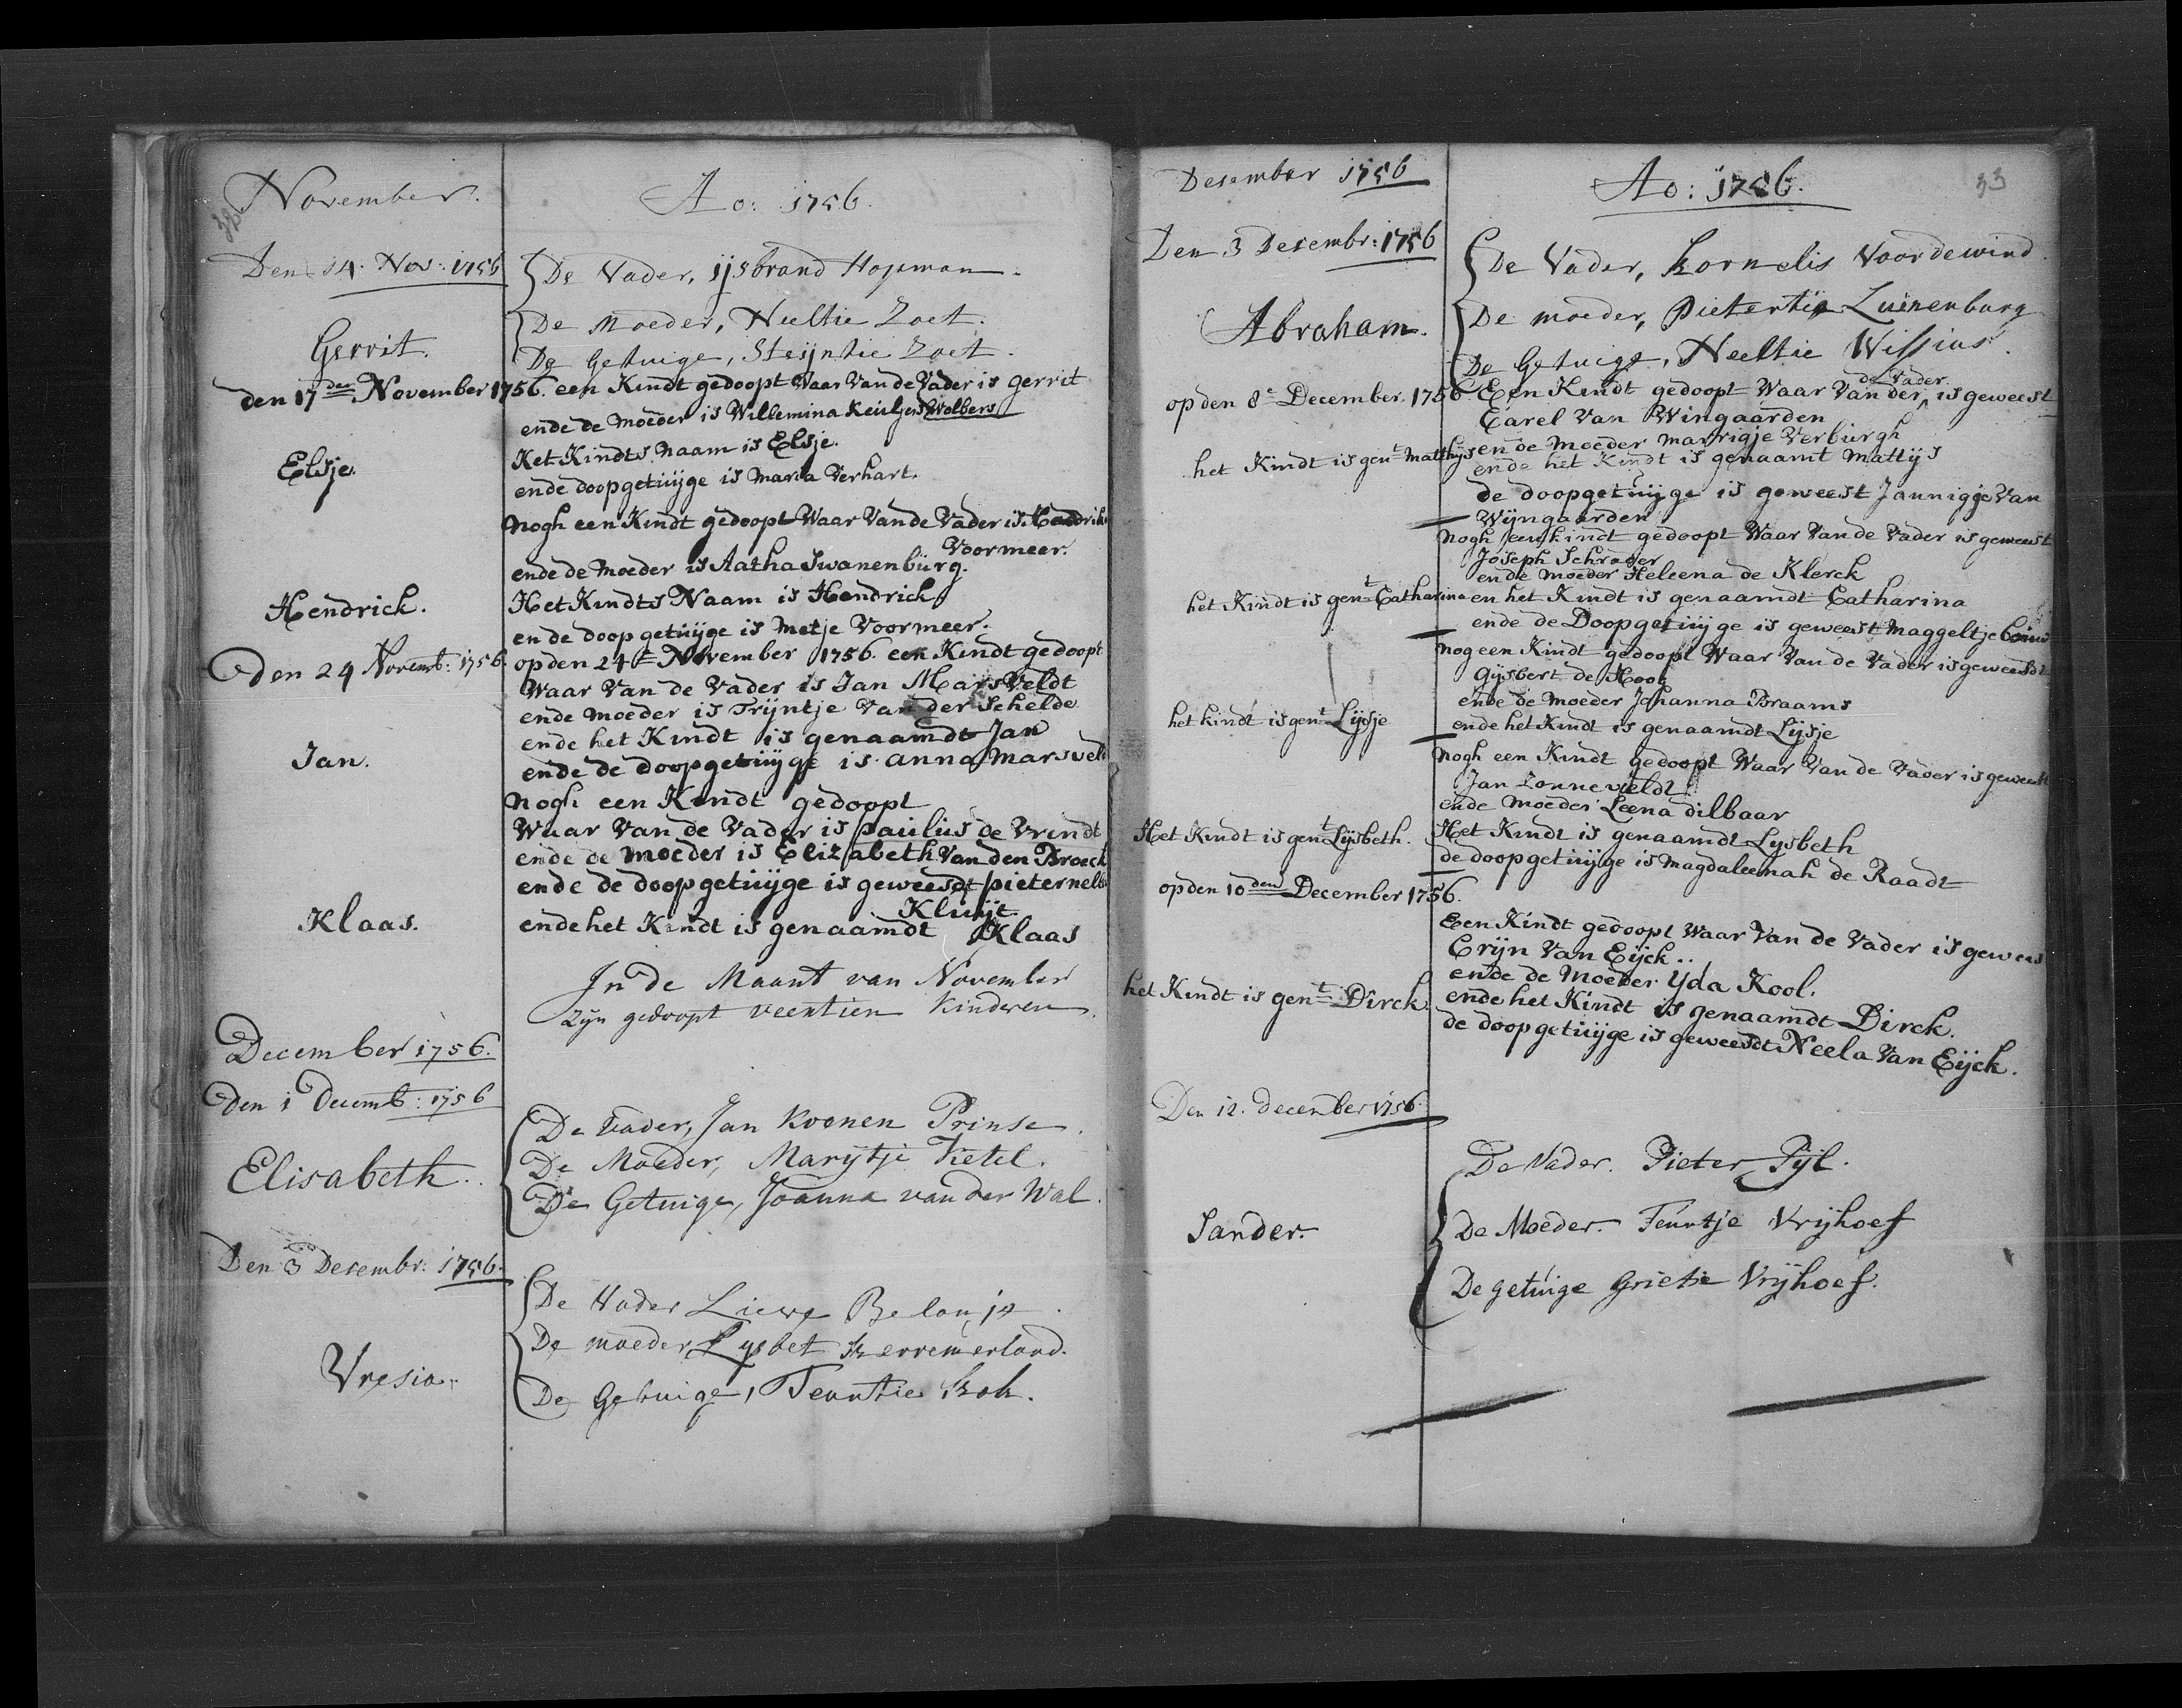 32
November.
Ao: 1756.
Den 14. Nov: 1756
De Vader, ijsbrand Hopman.
De Moeder, Neeltie Zoet.
Gerrit.
De Getuige, Steijntie Zoet.
den 17den November 1756. een Kindt gedoopt Waar Van de Vader is gerrit
Wolbers
ende de moeder is Willemina Keuljers
Het Kindts Naam is Elsje.
Elsje.
ende doopgetuijge is Maria Verhart.
Nogh een Kindt gedoopt Waar Van de Vader is Hendrik
Voormeer.
ende de Moeder is Aatha Swanenburg.
Hendrick.
Het Kindts Naam is Hendrick
ende doopgetuijge is Metje Voormeer.
den 24 Novemb: 1756.
op den 24e November 1756. een Kindt gedoopt
Waar Van de Vader is Jan MarsVeldt
ende moeder is Trijntje Van der Schelde
ende het Kindt is genaamdt Jan
Jan.
ende de doopgetuijge is anna Marsvelt
Nogh een Kindt gedoopt
Waar Van de Vader is paulus de Vrindt
ende de moeder is Elizabeth Van den Broeck
ende de doopgetuijge is geweesdt pieternella
Kluijt.
Klaas.
ende het Kindt is genaamdt Klaas
In de Maant van November
zijn gedoopt veertien Kinderen.
December 1756.
den 1 Decemb: 1756
De Vader, Jan Koenen Prinse.
De Moeder, Marijtje Ketel.
Elisabeth.
De Getuige, Joanna van der Wal.
Den 3 Desembr: 1756.
De Vader Liewe Belonje
De moeder Lysbet Kerremerland.
Vresia.
De Getuige, Teuntie Kok.
Desember 1756
Ao: 1756.
33
Den 3 Desembr: 1756
De Vader, Kornelis Voordewind.
De moeder, Pietertie Luinenburg
Abraham.
De Getuige, Neeltie Wissius.
de Vader
op den 8e December. 1756 Een Kindt gedoopt Waar Van der, is geweest
Carel Van Wingaarden
ende Moeder marrigje Verburgh
het Kindt is gent Matthijs
ende het Kindt is genaamt Mattijs
de doopgetuijge is geweest Jannigje Van
Wijngaarden
Nogh een kindt gedoopt Waar Van de Vader is geweest
Joseph Schrader
ende moeder Heleena de Klerck
het Kindt is gent Catharina
en het Kindt is genaamdt Catharina
ende de Doopgetuijge is geweest Maggeltje
nog een Kindt gedoopt Waar Van de Vader is geweesdt
Gijsbert de Hoog
ende de moeder Johanna Braams
het kindt is gent Lijsje
ende het Kindt is genaamdt Lijsje
Nogh een Kindt gedoopt Waar Van de Vader is geweest
Jan Zonneveldt
ende moeder Leena dilbaar
Het Kindt is gent Lijsbeth.
Het Kindt is genaamdt Lysbeth
de doopgetuijge is Magdaleenah de Raadt
op den 10den December 1756.
Een Kindt gedoopt Waar Van de Vader is gewees
Crijn Van Eijck..
ende de Moeder Yda Kool.
het Kindt is gent Dirck.
ende het Kindt is genaamdt Dirck.
de doopgetuijge is geweesdt Neela Van Eijck.
Den 12. december 1756.
De Vader. Pieter Pijl.
Sander.
De Moeder. Teuntje Vrijhoef
De getuige Grietie Vrijhoef.